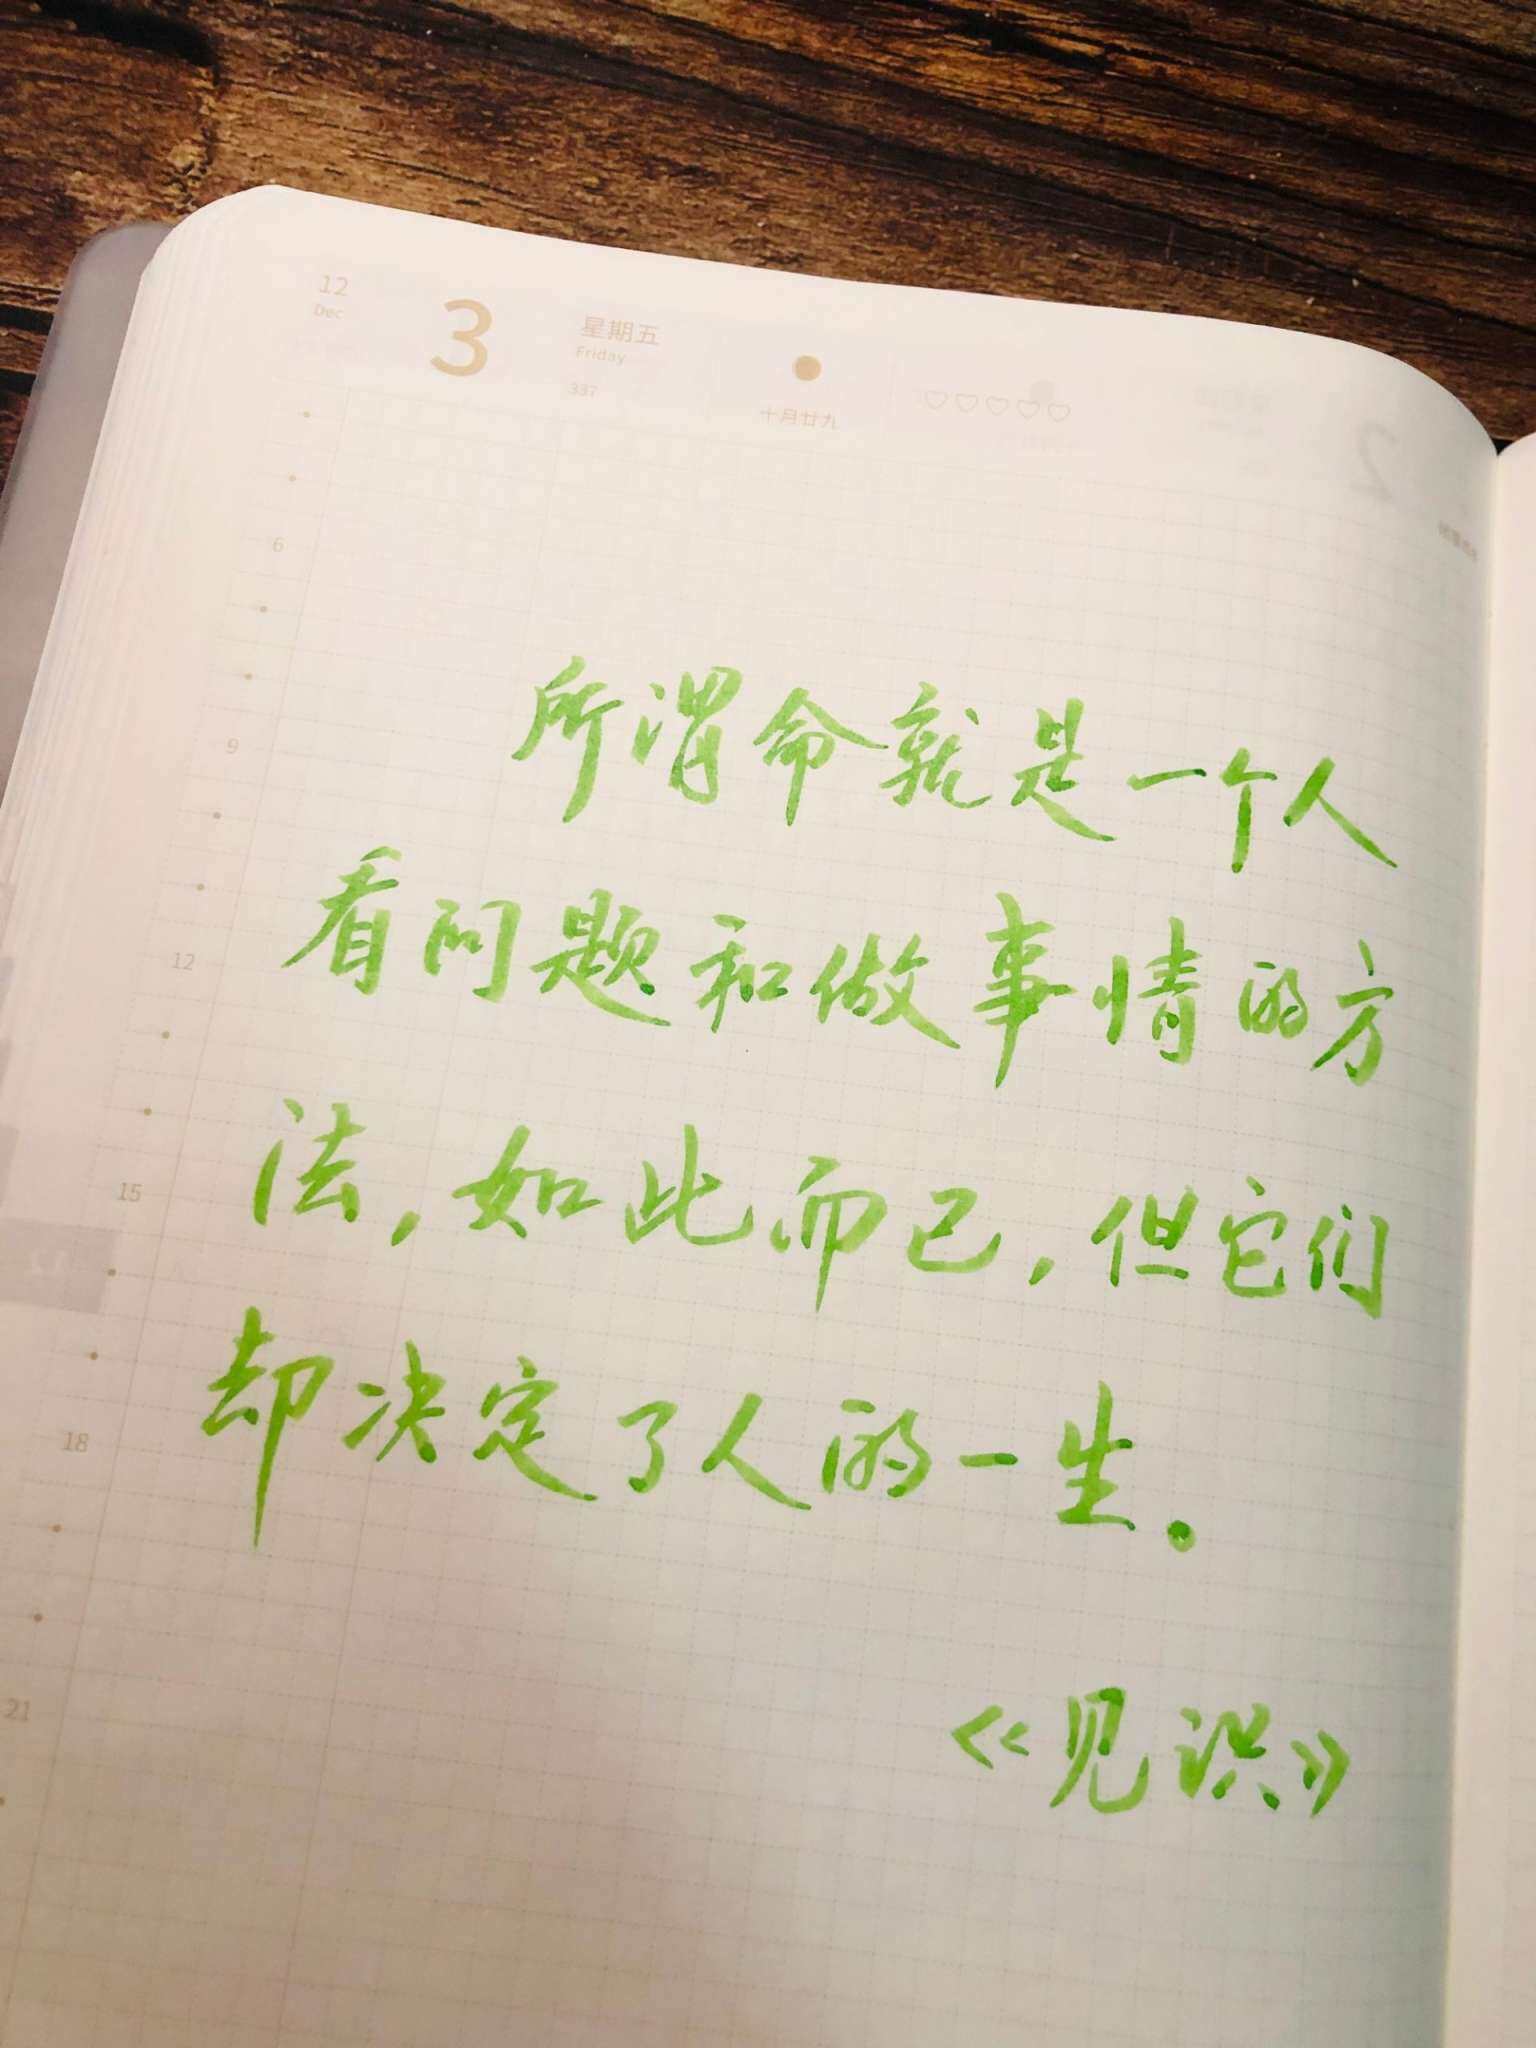 12
Dec
3
星期五
Friday
337
十月廿九
6
9
12
15
18
21
所谓命就是一个人
看问题和做事情的方
法，如此而已，但它们
却决定了人的一生.
《见识》